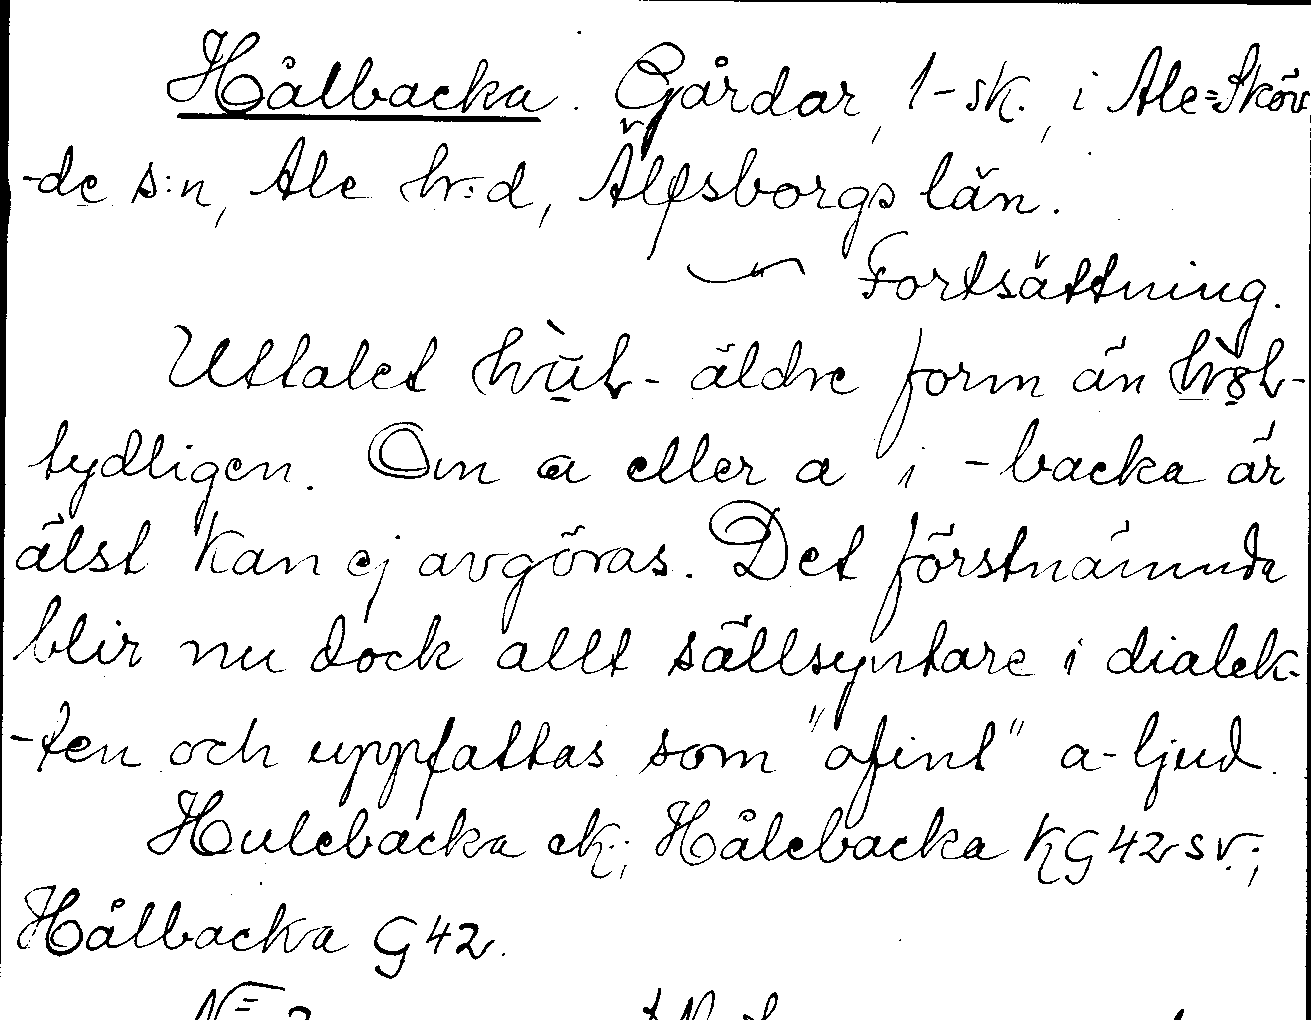 Hålbacka. Gårdar, 1-sk., i Ale=Sköv
-de s:n, Ale hr:d, Älfsborgs län.
Fortsättning.
Uttalet äldre form än
tydligen. Om a eller a i -backa är
älst kan ej avgöras. Det förstnämnda
blir nu dock allt sällsyntare i dialek-
-ten och uppfattas som "ofint" a-ljud.
Hulebacka ek.; Hålebacka KG42sv.;
Hålbacka G42.